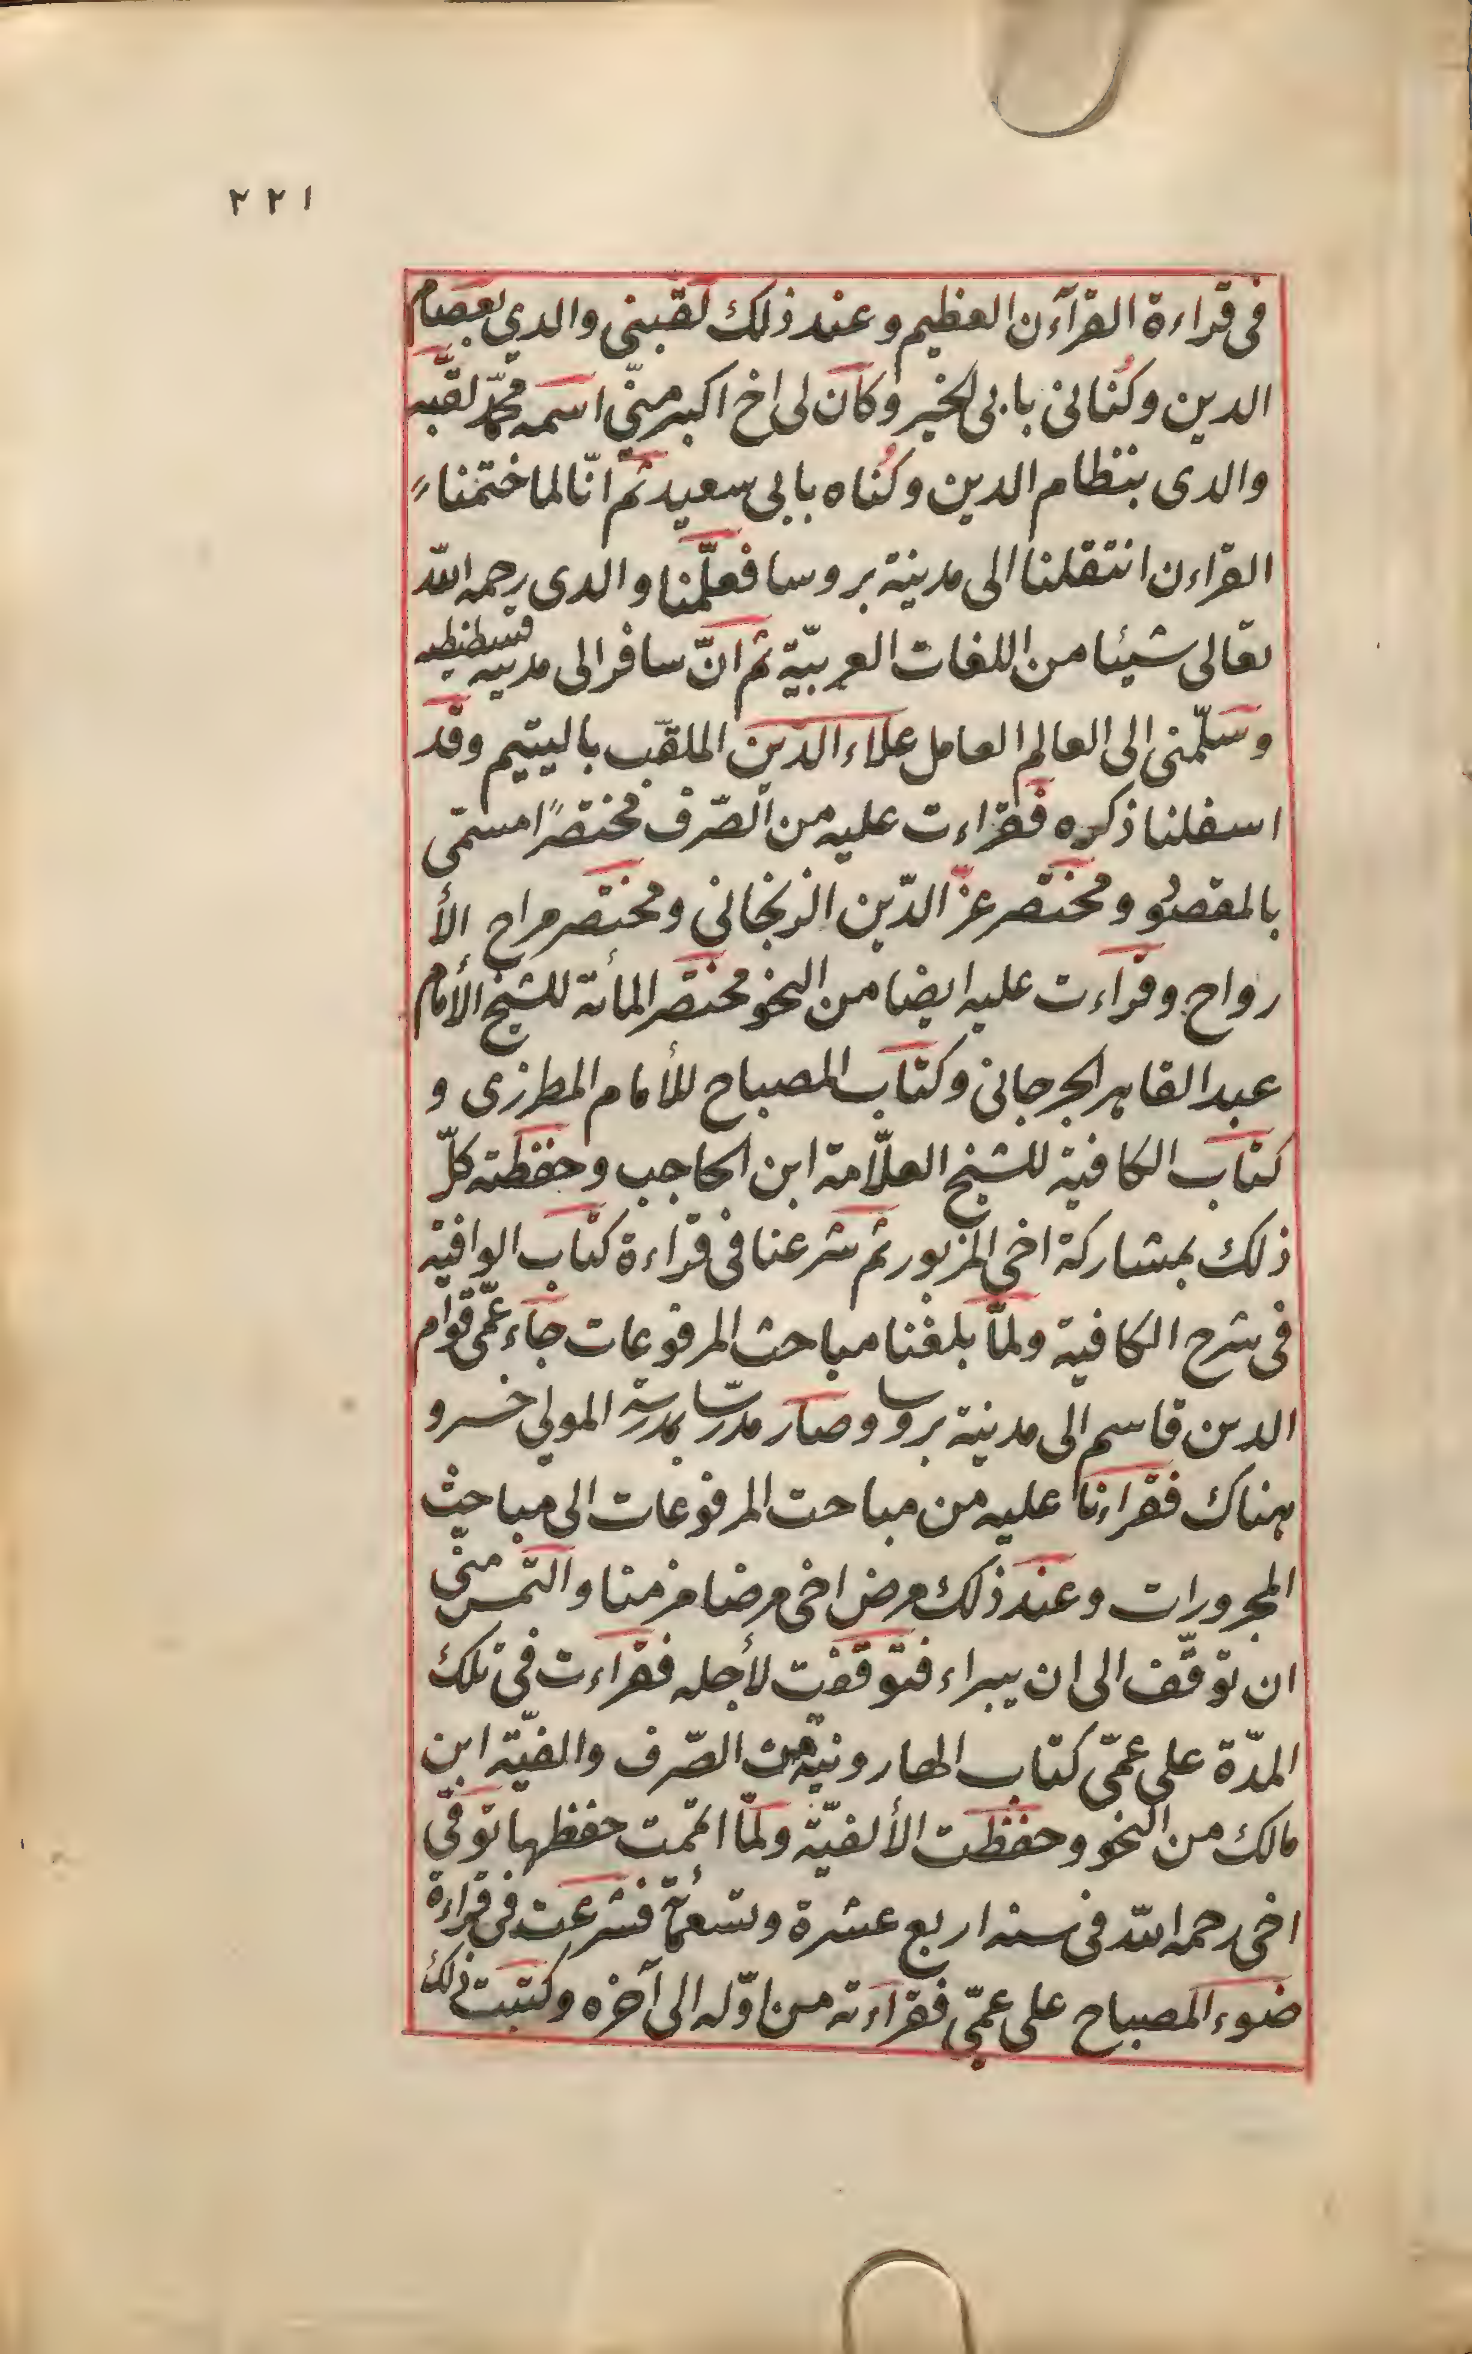 ٢٢١
فى قراءة القرآءن العظيم وعند ذلك لقبنى والدي بعصام
الدين وكُنانى بابى الخير وكان لى اخ اكبر منّي اسمه محمّد لقّبه
والدى بنظام الدين وكُناه بابى سعيد ثم انّا لما ختمنا
القراءن انتقلنا الى مدينة بروسا فعلّمنا والدى رحمه الله
تعالى شيئا من اللغات العربيّة ثم انّ سافر الى مدينه قسطنطنيه
وسلّمنى الى العالم العامل علاء الدين الملقّب باليتيم وقد
اسفلنا ذكره فقراءت عليه من الصّرف مختصرًا مسمّى
بالمقصود ومختصر عزّ الدّين الزنجانى ومختصر مراح الأ
رواح وقراءت عليه ايضا من النحو مختصر المأئة للشيخ الأمام
عبد القاهر الجرجانى وكتاب المصباح للأمام المطرزى و
كتاب الكافية للشيخ العلّامة ابن الحاجب وحفظته كلّ
ذلك بمشاركة اخى المزبور ثم شرعنا فى قراءة كتاب الوافية
فى شرح الكافية ولمّا بلغنا مباحث المرفوعات جاء عمّى قوام
الدين قاسم الى مدينة بروسا وصار مدرّسا بمدرسة المولى خسرو
هناك فقراءنا عليه من مباحث المرفوعات الى مباحث
المجرورات وعند ذلك مرض اخى مرضا مزمنا والتمس منّى
ان توقّف الى ان يبراء فتوقفت لأجله فقراءت فى تلك
المدّة على عمّى كتاب الهارونيّة من الصّرف والفيّة ابن
مالك من النحو وحفظت الألفيّة ولمّا اتممت حفظها توفّى
اخى رحمه الله فى سنه اربع عشرة وتسعمأئة فشرعت فى قراءة
ضوء المصباح على عمّى فقراءته من اوّله الى آخره وكتبت ذلك